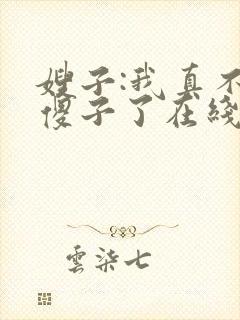 嫂子:我真不
傻子了在綫
雲柒七